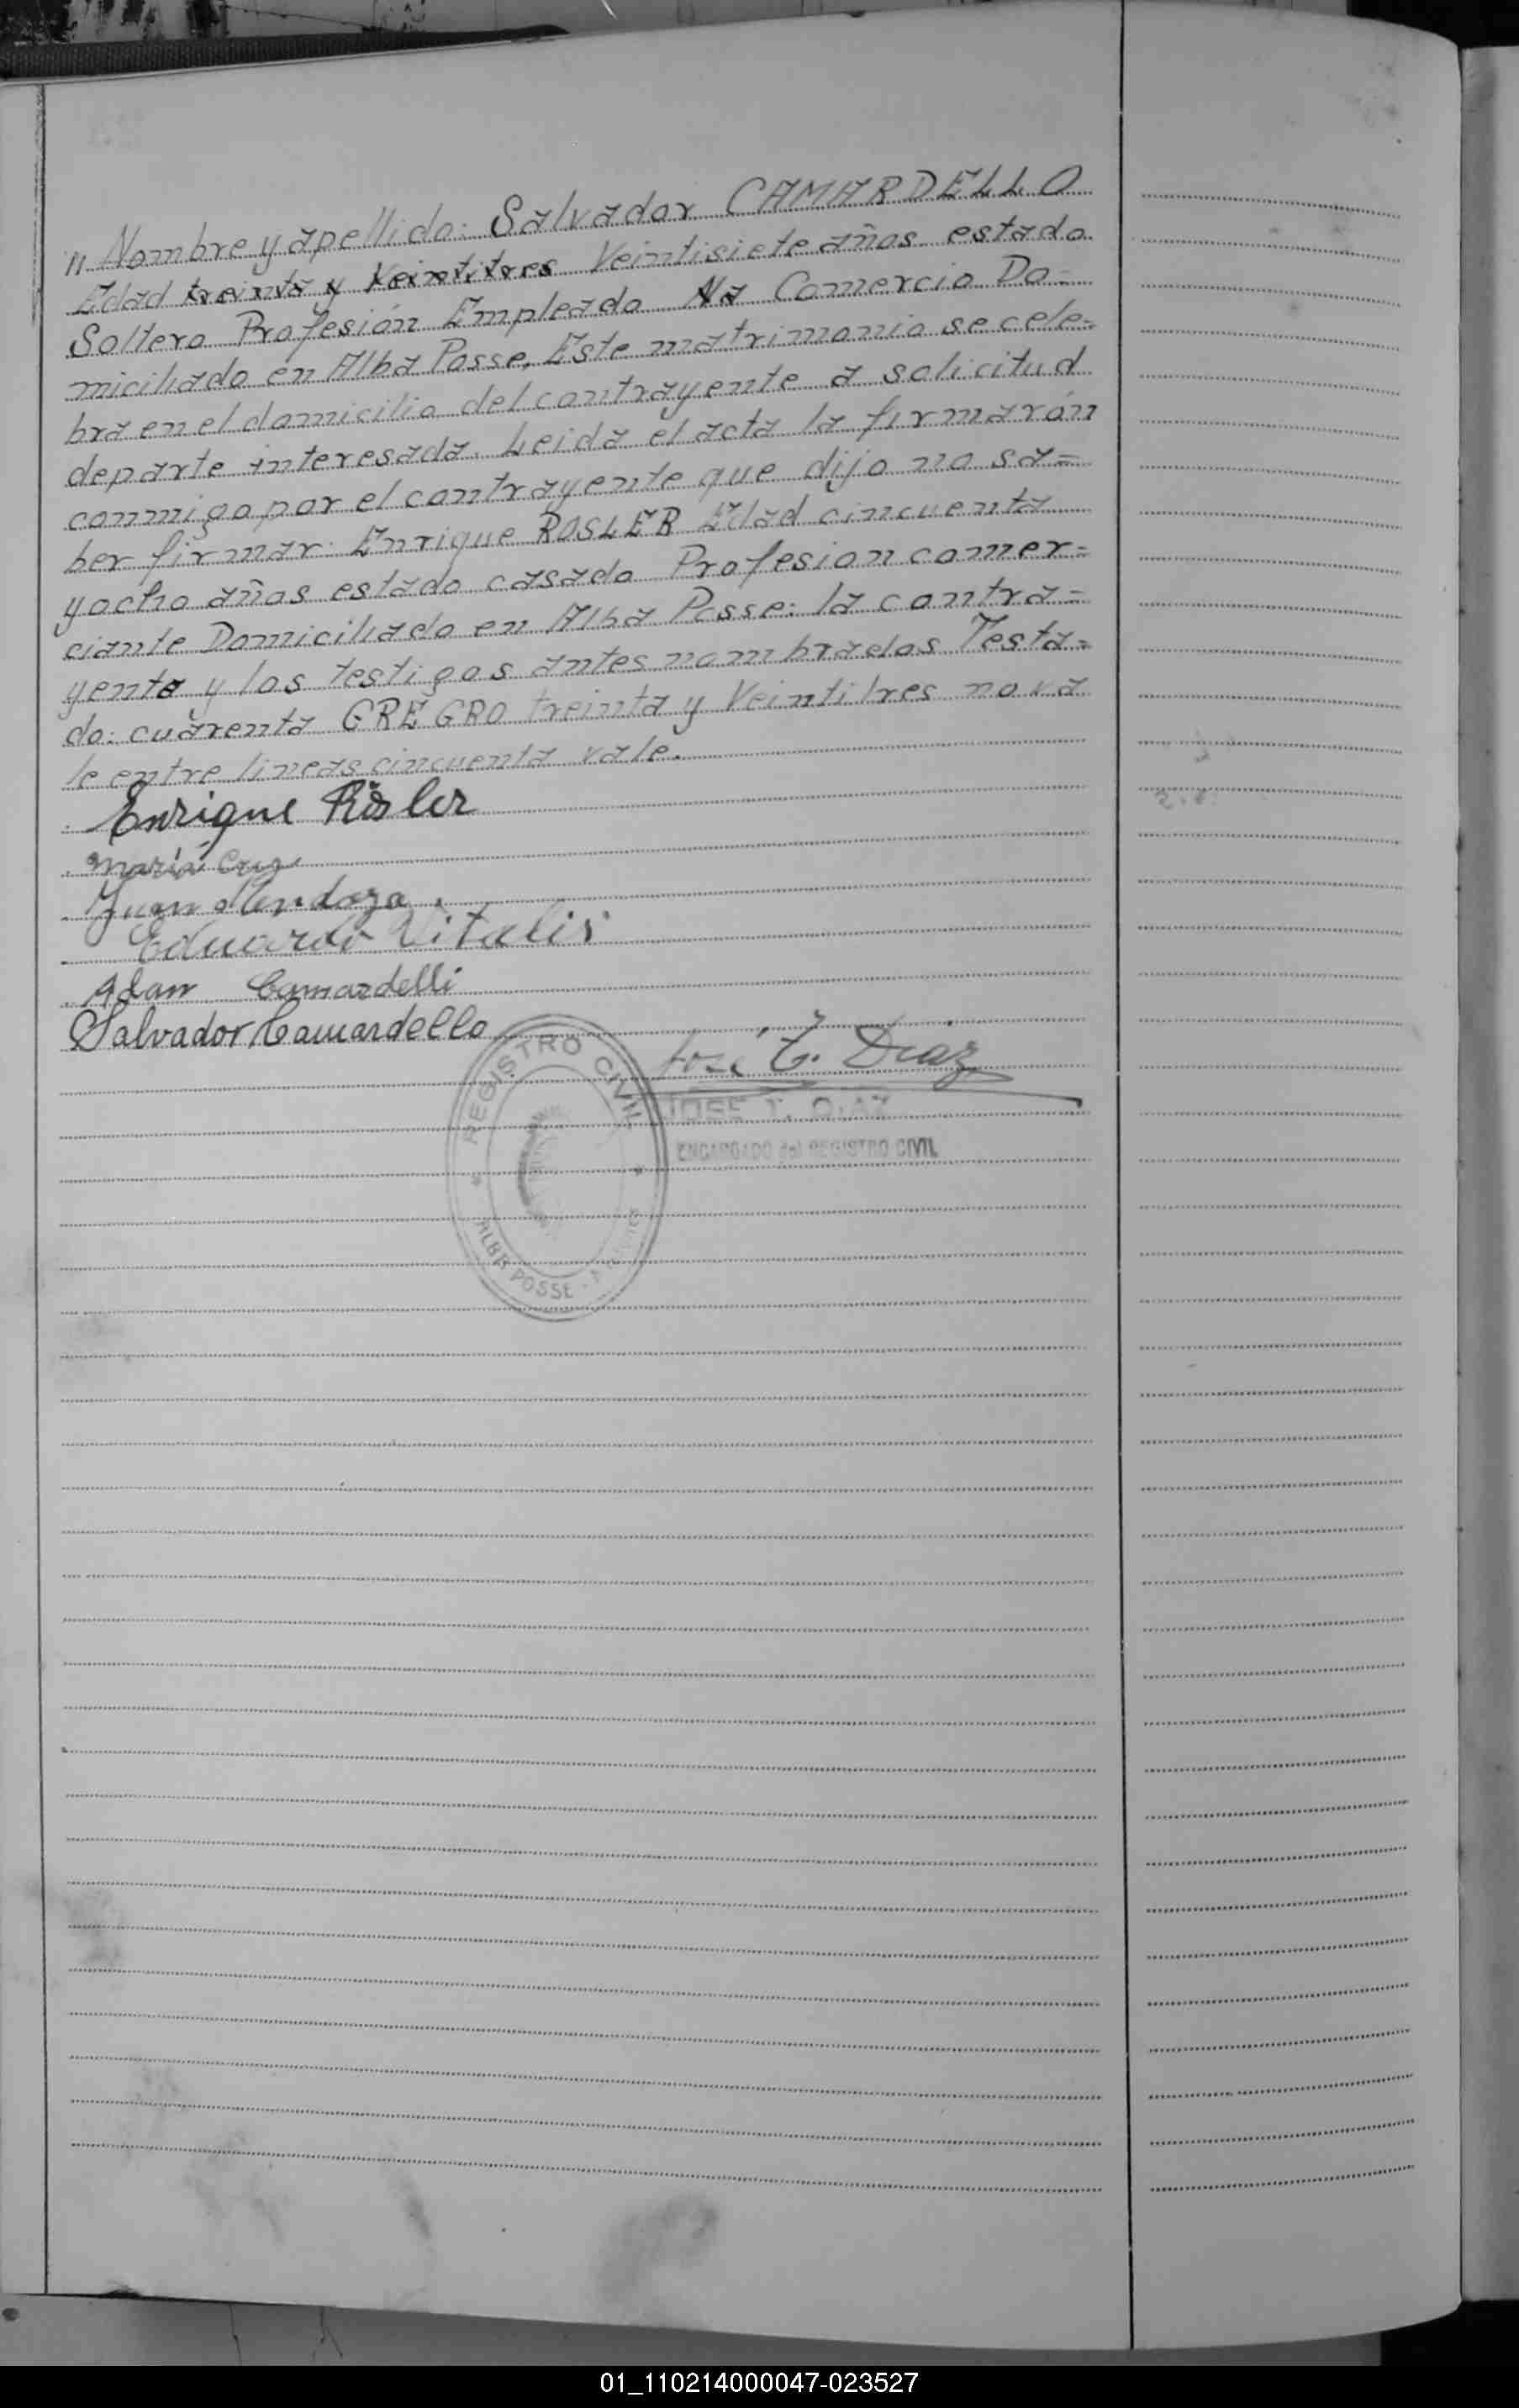 " Nombre y apellido: Salvador CAMARDELLO
Edad treinta y Veintitres Veintisiete años estado
Soltero Profesión Empleado Na Comercio Do=
miciliado en Alba Posse, Este matrimonio se cele=
bra en el domicilio del contrayente a solicitud
departe interesada. Leida el acta la firmarón
conmigo por el contrayente que dijo no sa=
ber firmar: Enrique ROSLER Edad cincuenta
yocho años estado casado Profesion comer=
ciante Domiciliado en Alba Posse: la contra=
yente y los testigos antes nombrados Testa=
do: cuarenta GREGRO treinta y Veintitres no va
le entre lineas cincuenta vale.
Enrique Rösler
María Cruz
Juan Mendoza
Eduardo Vitalis
Adan Camardelli
Salvador Camardello
José T. Diaz
JOSE T. DIAZ
ENCARGADO del REGISTRO CIVIL
REGISTRO CIVIL
ALBA POSSE
01_110214000047-023527